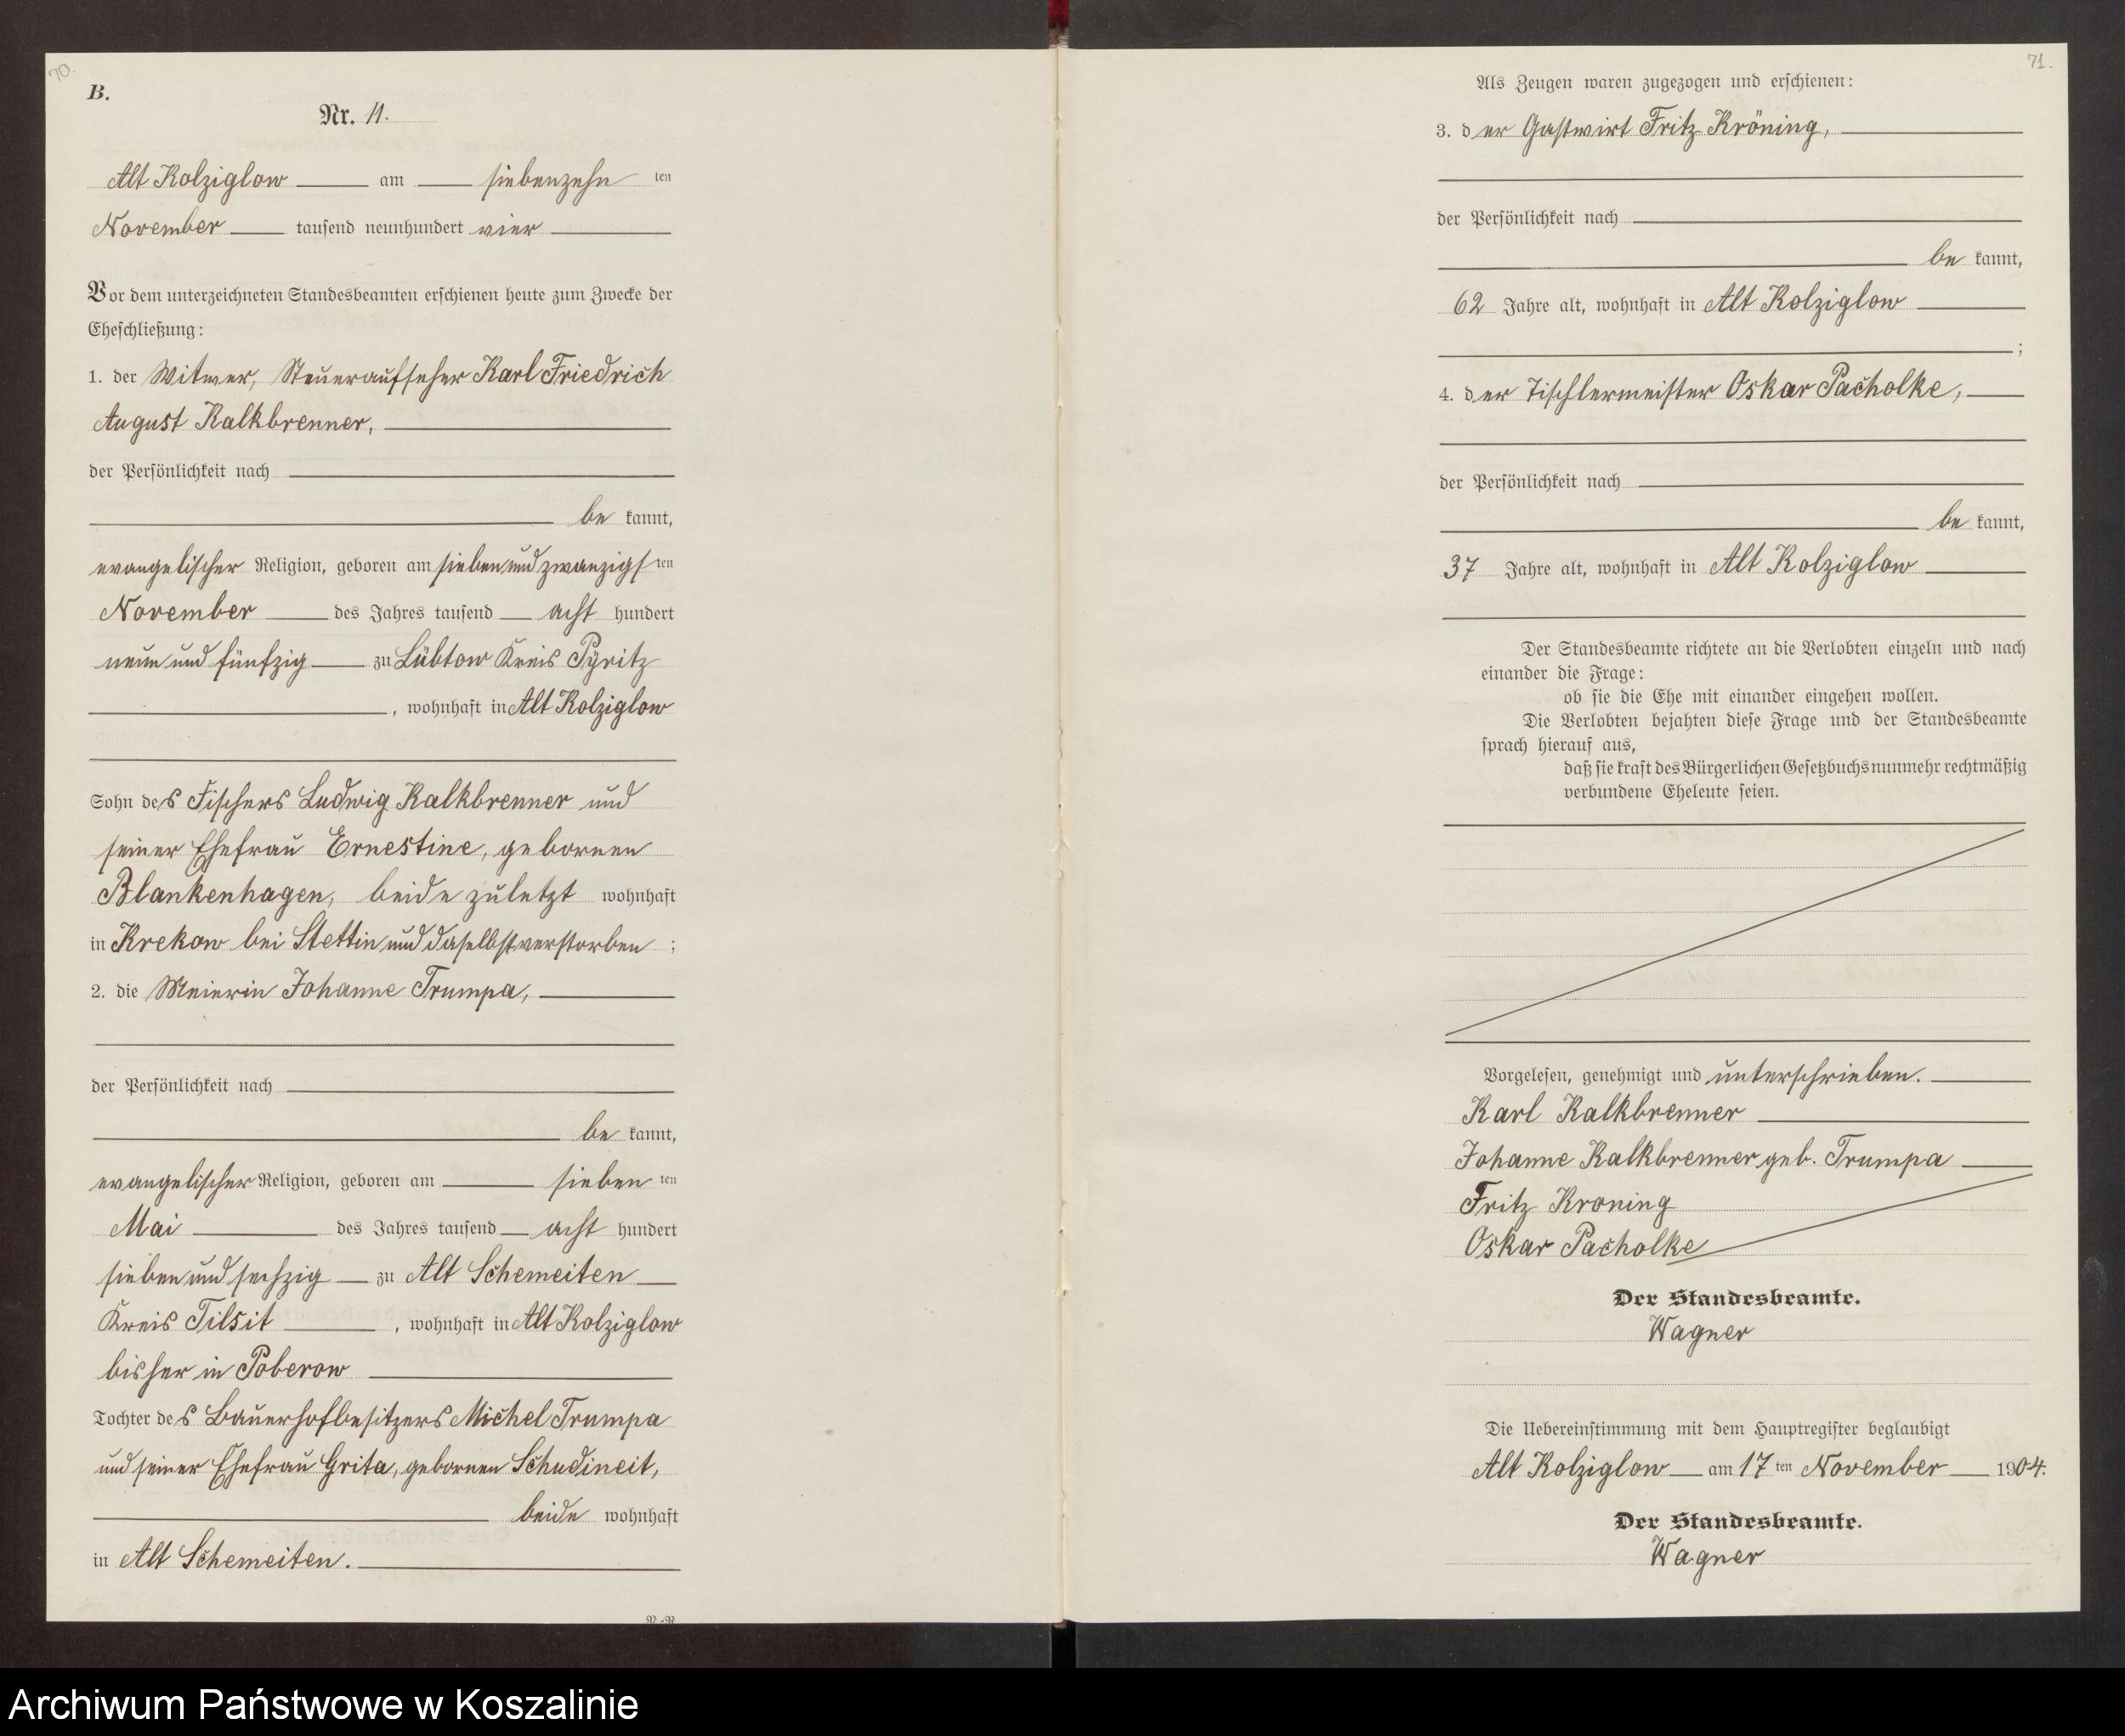 70.
B.
Nr. 11.
Alt Kolziglow am siebenzehn ten
November tausend neunhundert vier
Vor dem unterzeichneten Standesbeamten erschienen heute zum Zwecke der
Eheschließung:
1. der Witwer, Steueraufseher Karl Friedrich
August Kalkbrenner,
der Persönlichkeit nach
be kannt,
evangelischer Religion, geboren am siebenundzwanzigs ten
November des Jahres tausend acht hundert
neun und fünfzig zu Lübtow Kreis Pyritz
, wohnhaft in Alt Kolziglow
Sohn des Fischers Ludwig Kalkbrenner und
seiner Ehefrau Ernestine, gebornen
Blankenhagen, beide zuletzt wohnhaft
in Krekow bei Stettin und daselbst verstorben ;
2. die Meierin Johanne Trumpa,
der Persönlichkeit nach
be kannt,
evangelischer Religion, geboren am sieben ten
Mai des Jahres tausend acht hundert
sieben und sechzig zu Alt Schemeiten
Kreis Tilsit , wohnhaft in Alt Kolziglow
bisher in Poberow
Tochter des Bauerhofbesitzers Michel Trumpa
und seiner Ehefrau Grita, gebornen Schudineit,
beide wohnhaft
in Alt Schemeiten.
71.
Als Zeugen waren zugezogen und erschienen:
3. der Gastwirt Fritz Kröning,
der Persönlichkeit nach
be kannt,
62 Jahre alt, wohnhaft in Alt Kolziglow
;
4. der Tischlermeister Oskar Pacholke,
der Persönlichkeit nach
be kannt,
37 Jahre alt, wohnhaft in Alt Kolziglow
Der Standesbeamte richtete an die Verlobten einzeln und nach
einander die Frage:
ob sie die Ehe mit einander eingehen wollen.
Die Verlobten bejahten diese Frage und der Standesbeamte
sprach hierauf aus,
daß sie kraft des Bürgerlichen Gesetzbuchs nunmehr rechtmäßig
verbundene Eheleute seien.
Vorgelesen, genehmigt und unterschrieben.
Karl Kalkbrenner
Johanne Kalkbrenner geb. Trumpa
Fritz Kroning
Oskar Pacholke
Der Standesbeamte.
Wagner
Die Uebereinstimmung mit dem Hauptregister beglaubigt
Alt Kolziglow am 17 ten November 1904.
Der Standesbeamte.
Wagner
Archiwum Państwowe w Koszalinie